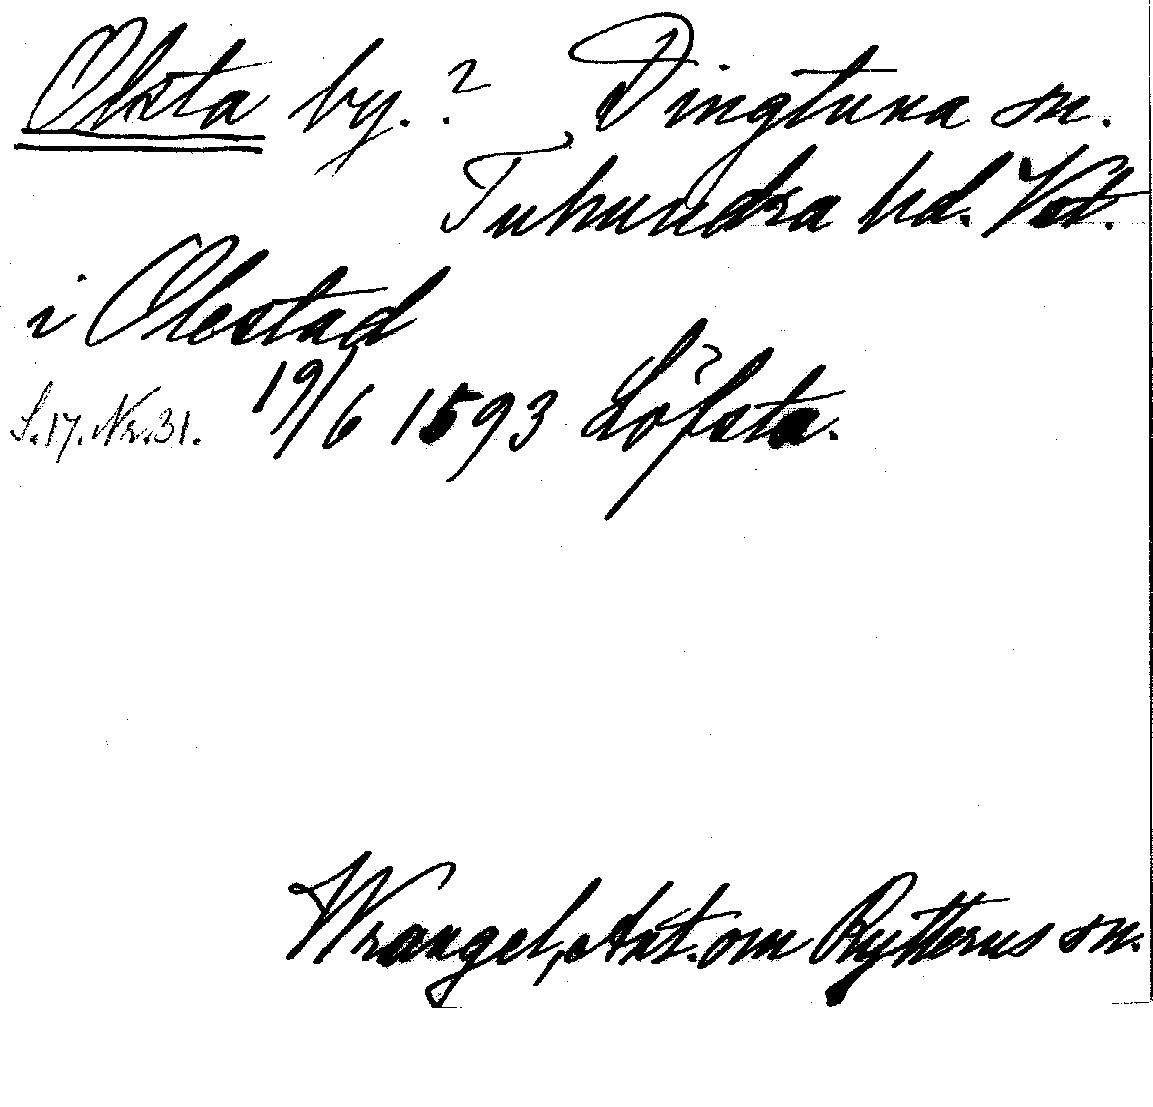 Olsta by.? Dingtuna sn.
Tuhundra hd. Vst.
i Olestad
S.17. Nr.31. 19/6 1593 Löfsta.
Wrangel, Ant. om Rytterns sn.